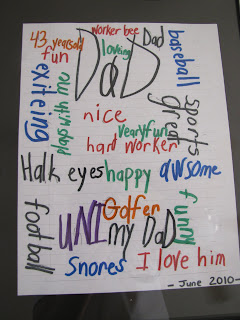 43 years old
worker bee
Dad
fun
DaD
loveing
baseball
exiteing
plays with me
nice
sports
great
vearyfun
hard worker
Halk eyes
happy
awsome
football
UNI
Golfer
my DaD
funny
Snores
I love him
- June 2010 -